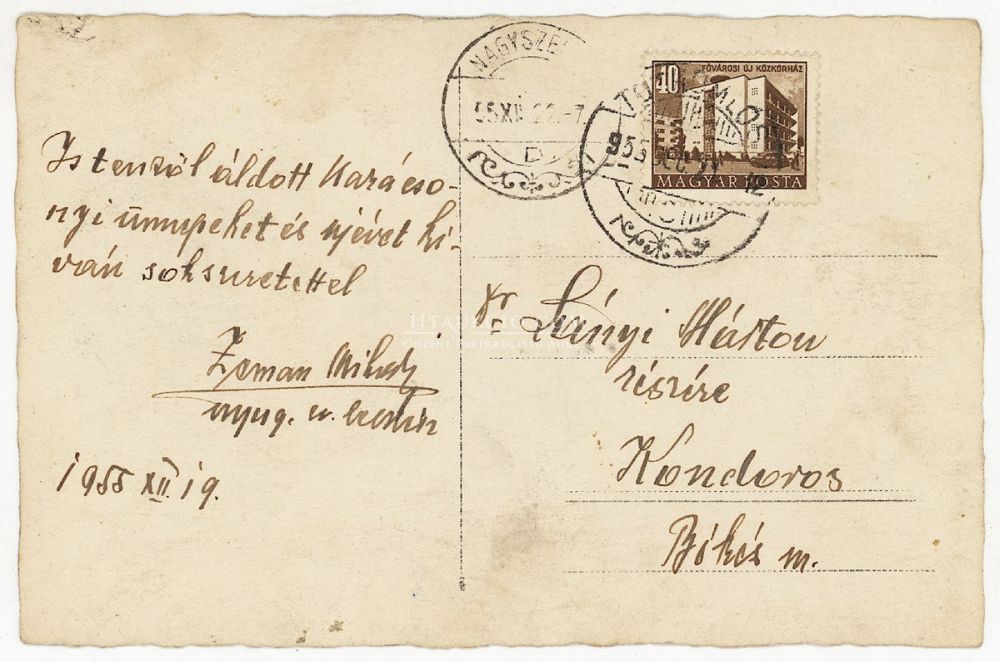 Istentől áldott Karácso-
nyi ünnepeket és ujévet kí-
ván sokszeretettel
Zeman Mihály
nyug.
1955 XII. 19.
NAGYSZE
55 XII 22.-7
D
40
FŐVÁROSI ÚJ KÖZKÓRHÁZ
MAGYAR POSTA
955
12
dr Lányi Márton
részére
Kondoros
Békés m.